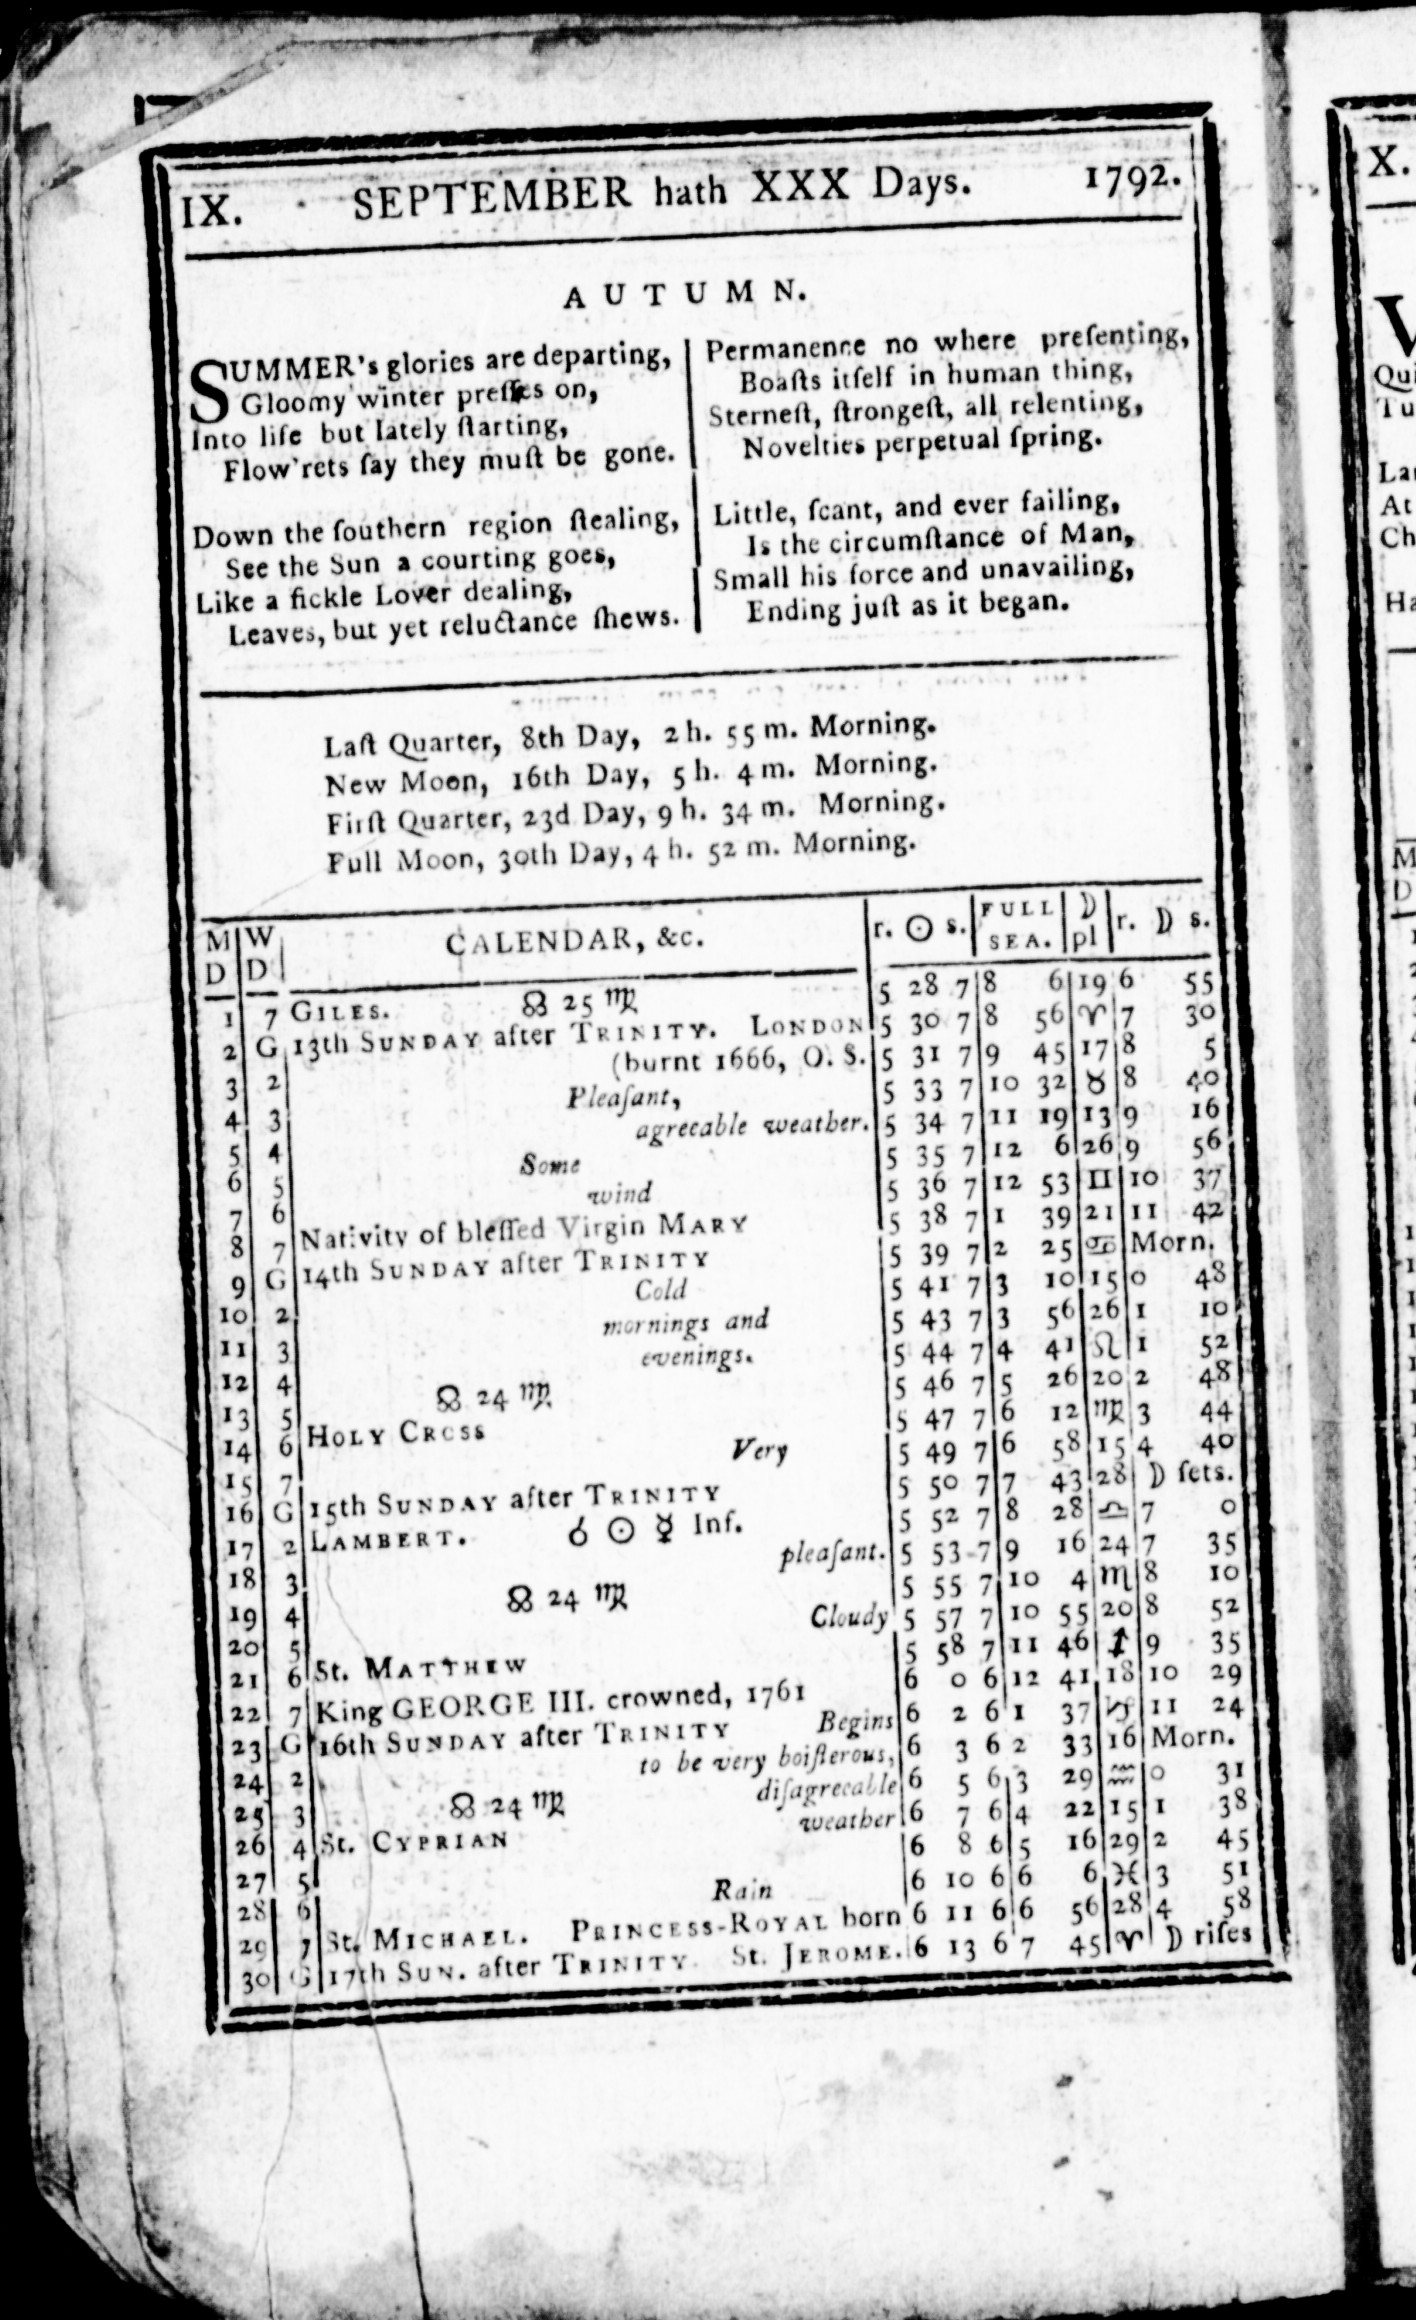 IX. SEPTEMBER hath XXX Days. 1792.
AUTUMN.
SUMMER's glories are departing,
Gloomy winter preſſes on,
Into life but lately ſtarting,
Flow'rets ſay they muſt be gone.
Down the ſouthern region ſtealing,
See the Sun a courting goes,
Like a fickle Lover dealing,
Leaves, but yet reluctance ſhews.
Permanence no where preſenting,
Boaſts itſelf in human thing,
Sterneſt, ſtrongeſt, all relenting,
Novelties perpetual ſpring.
Little, ſcant, and ever failing,
Is the circumſtance of Man,
Small his force and unavailing,
Ending juſt as it began.
Laſt Quarter, 8th Day, 2 h. 55 m. Morning.
New Moon, 16th Day, 5 h. 4 m. Morning.
Firſt Quarter, 23d Day, 9 h. 34 m. Morning.
Full Moon, 30th Day, 4 h. 52 m. Morning.
M D W D CALENDAR, &c. r. ☉ s. FULL SEA. ☽ pl r. ☽ s.
1 7 GILES. ☊ 25 ♍ 5 28 7 8 6 19 6 55
2 G 13th SUNDAY after TRINITY. LONDON 5 30 7 8 56 ♈ 7 30
3 2 (burnt 1666, O. S. 5 31 7 9 45 17 8 5
4 3 Pleaſant, 5 33 7 10 32 ♉ 8 40
5 4 agreeable weather. 5 34 7 11 19 13 9 16
6 5 Some 5 35 7 12 6 26 9 56
7 6 wind 5 36 7 12 53 ♊ 10 37
8 7 Nativity of bleſſed Virgin MARY 5 38 7 1 39 21 11 42
9 G 14th SUNDAY after TRINITY 5 39 7 2 25 ♋ Morn.
10 2 Cold 5 41 7 3 10 15 0 48
11 3 mornings and 5 43 7 3 56 26 1 10
12 4 evenings. 5 44 7 4 41 ♌ 1 52
13 5 ☊ 24 ♍ 5 46 7 5 26 20 2 48
14 6 HOLY CROSS 5 47 7 6 12 ♍ 3 44
15 7 Very 5 49 7 6 58 15 4 40
16 G 15th SUNDAY after TRINITY 5 50 7 7 43 28 ☽ ſets.
17 2 LAMBERT. ☌ ☉ ☿ Inf. 5 52 7 8 28 ♎ 7 0
18 3 pleaſant. 5 53 7 9 16 24 7 35
19 4 ☊ 24 ♍ 5 55 7 10 4 ♏ 8 10
20 5 Cloudy 5 57 7 10 55 20 8 52
21 6 St. MATTHEW 5 58 7 11 46 ♐ 9 35
22 7 King GEORGE III. crowned, 1761 6 0 6 12 41 18 10 29
23 G 16th SUNDAY after TRINITY Begins 6 2 6 1 37 ♑ 11 24
24 2 to be very boiſterous, 6 3 6 2 33 16 Morn.
25 3 ☊ 24 ♍ diſagreeable 6 5 6 3 29 ♒ 0 31
26 4 St. CYPRIAN weather 6 7 6 4 22 15 1 38
27 5 6 8 6 5 16 29 2 45
28 6 Rain 6 10 6 6 6 ♓ 3 51
29 7 St. MICHAEL. PRINCESS-ROYAL born 6 11 6 6 56 28 4 58
30 G 17th SUN. after TRINITY. St. JEROME. 6 13 6 7 45 ♈ ☽ riſes
X.
Qui
Tu
La
At
Ch
Ha
M
D